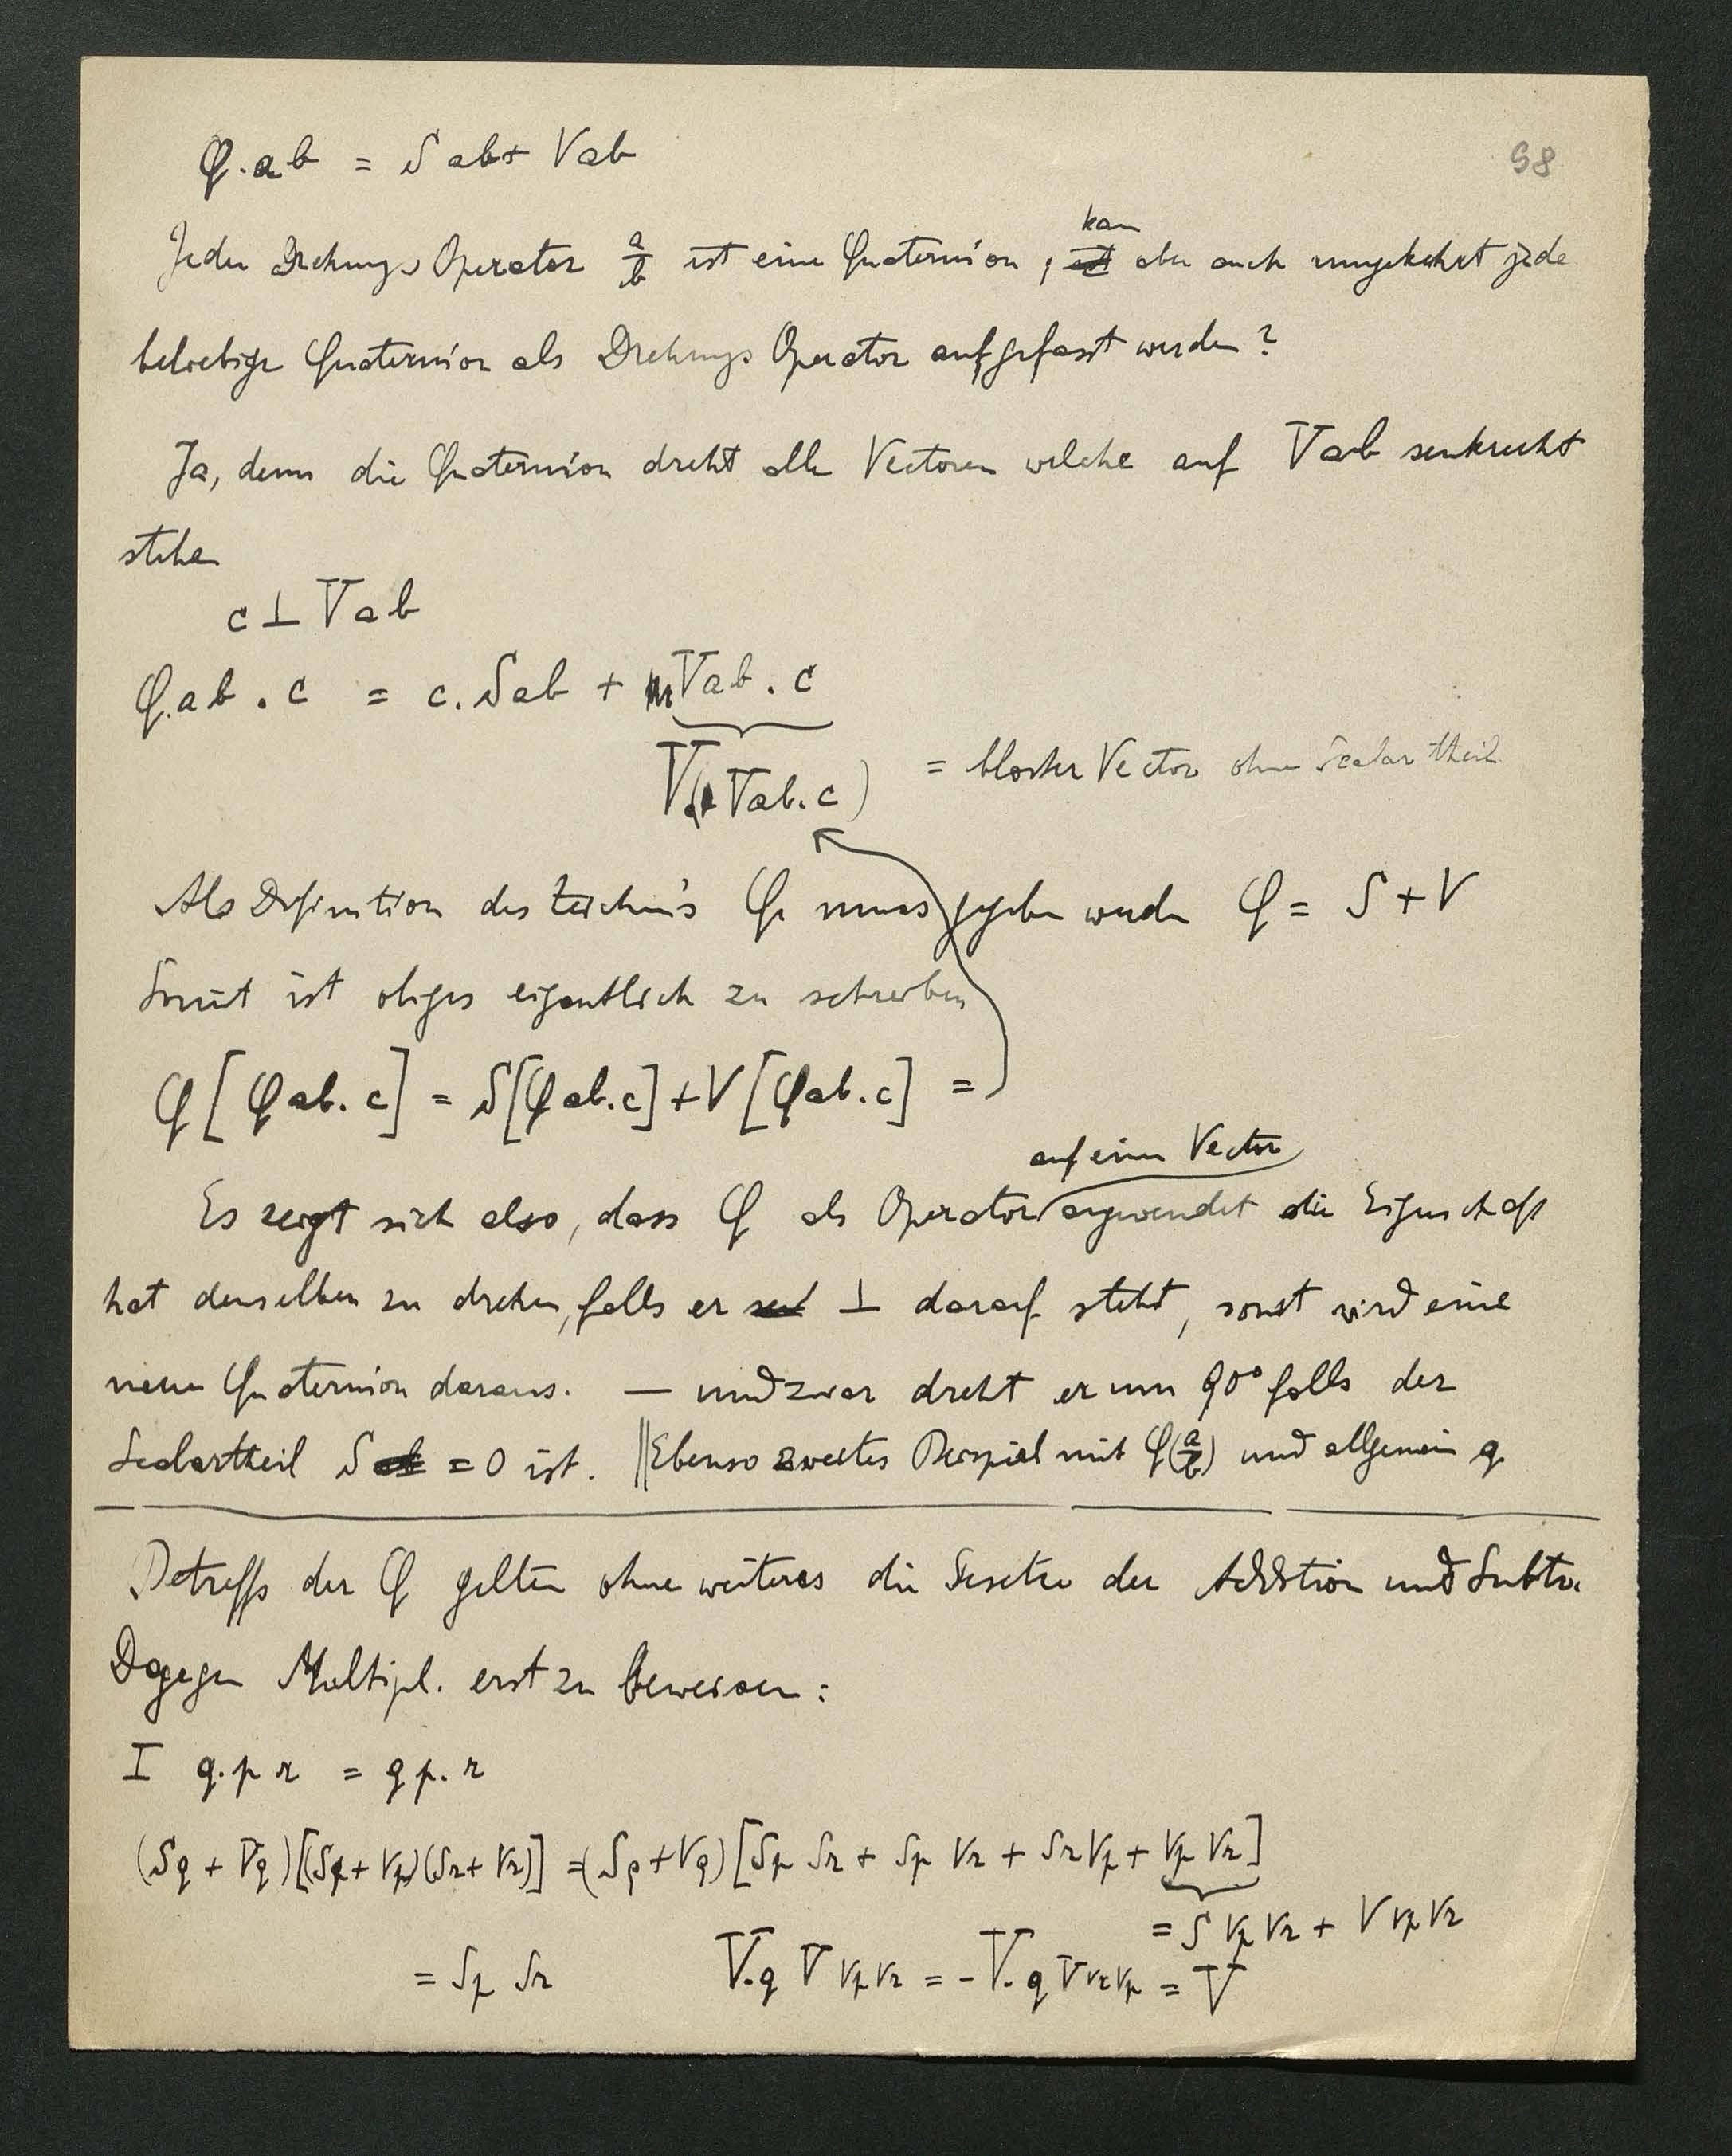 98
Q.ab = Sab + Vab
kan
Jeder Drehungs Operator a/b ist eine Quaternion, ist aber auch umgekehrt jede
beliebige Quaternion als Drehungs Operator aufgefasst werden?
Ja, denn die Quaternion dreht alle Vectoren welche auf Vab senkrecht
stehen
c ⊥ Vab
Q.ab . c = c. Sab + Vab . c
V( Vab.c) = blosser Vector ohne Scalartheil
Als Definition des Zeichens Q muss gegeben werden Q = S + V
Somit ist obiges eigentlich zu schreiben
Q[Qab.c] = S[Qab.c] + V[Qab.c] =
auf einen Vector
Es zeigt sich also, dass Q als Operator angewendet die Eigenschaft
hat denselben zu drehen, falls er ⊥ darauf steht, sonst wird eine
neue Quaternion daraus. — und zwar dreht er um 90° falls der
Scalartheil S = 0 ist. || Ebenso zweites Beispiel mit Q(a/b) und allgemein q
Betreffs der Q gelten ohne weiteres die Gesetze der Addition und Subtr.
Dagegen Multipl. erst zu beweisen:
I q.pr = qp.r
(Sq + Vq)[(Sp + Vp)(Sr + Vr)] = (Sq + Vq)[Sp Sr + Sp Vr + Sr Vp + Vp Vr]
= S Vp Vr + V Vp Vr
= Sp Sr V.q V Vp Vr = - V.q V Vr Vp = V